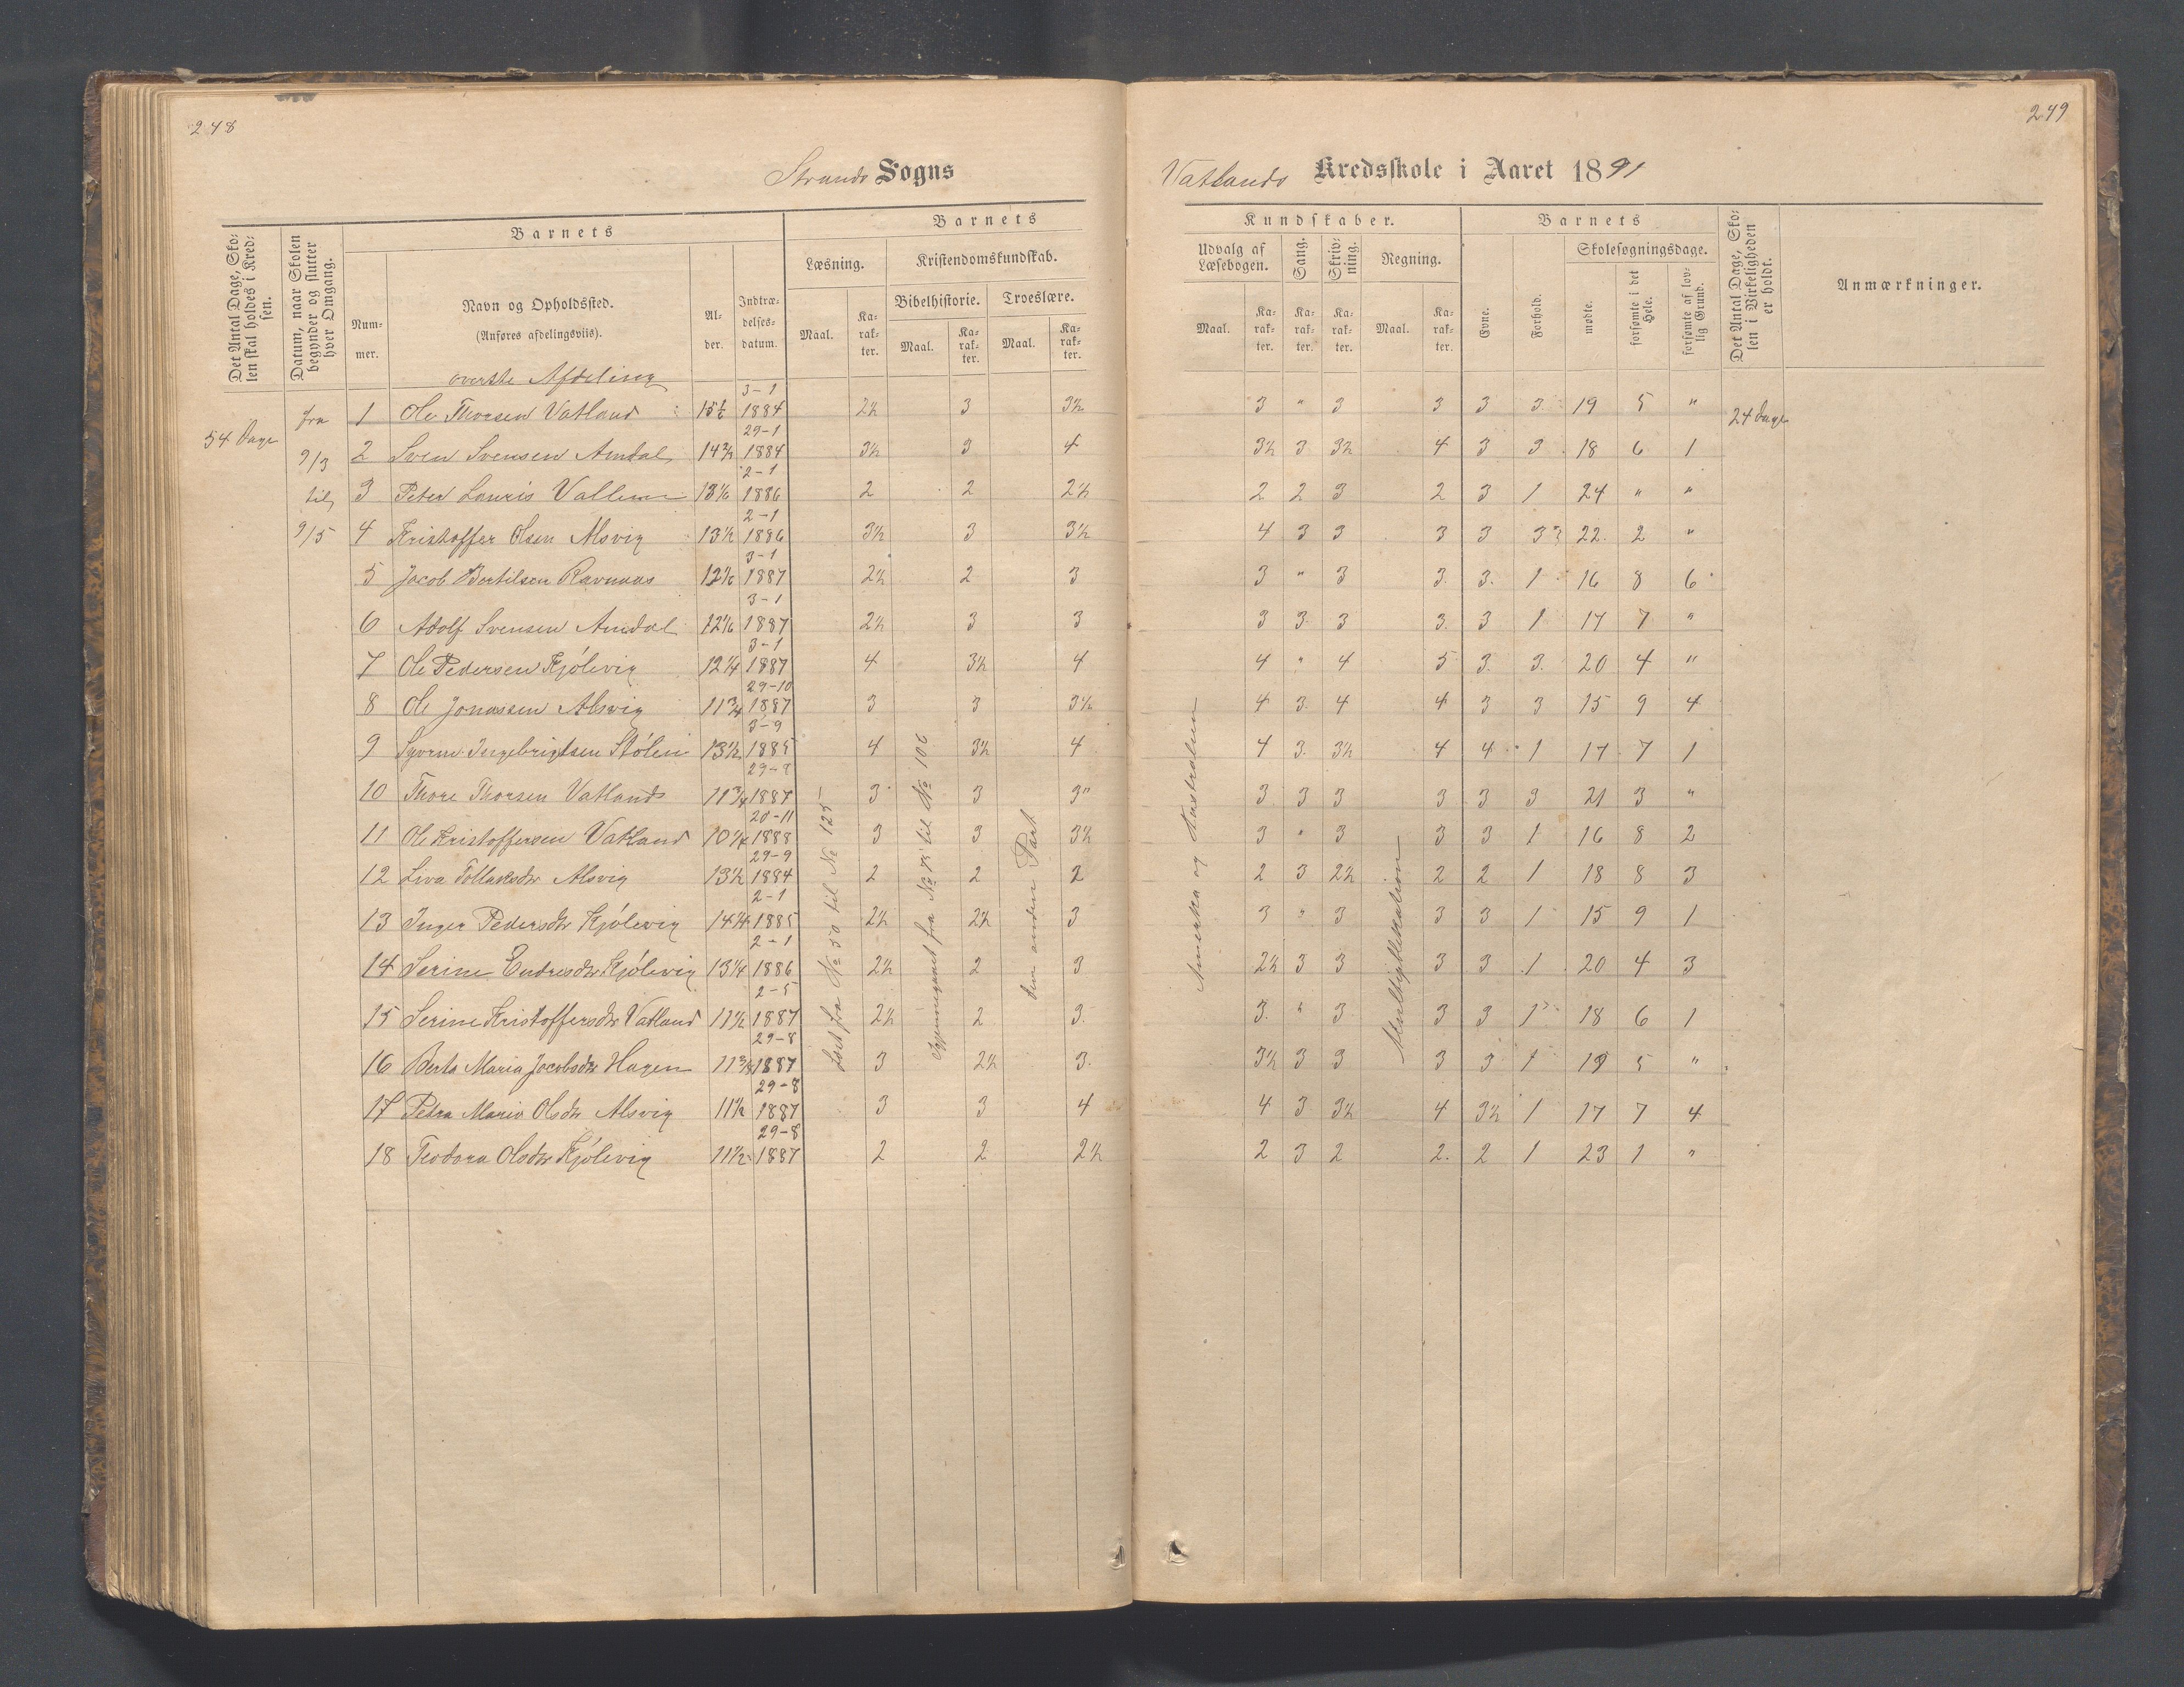 248
249
Strands Sogns
Vatlands Kredsskole i Aaret 1891
Det Antal Dage, Skolen skal holdes i Kredsen.
Datum, naar Skolen begynder og slutter hver Omgang.
Barnets
Nummer.
Navn og Opholdssted.
(Anføres afdelingsviis).
Alder.
Indtrædelsesdatum.
Barnets
Læsning.
Kristendomskundskab.
Bibelhistorie.
Troeslære.
Maal.
Karakter.
Maal.
Karakter.
Maal.
Karakter.
Kundskaber.
Udvalg af Læsebogen.
Sang.
Skrivning.
Regning.
Maal.
Karakter.
Karakter.
Karakter.
Maal.
Karakter.
Barnets
Evne.
Forhold.
Skolesøgningsdage.
mødte.
forsømte i det Hele.
forsømte af lovlig Grund.
Det Antal Dage, Skolen i Virkeligheden er holdt.
Anmærkninger.
øverste Afdeling
54 Dage
fra
9/3
til
9/5
24 Dage
1 Ole Thorsen Vatland 15½ 3-1 1884 2½ 3 3½ 3 " 3 3 3 3 19 5 "
2 Sven Svensen Amdal 14¾ 29-1 1884 3½ 3 4 3½ 3 3½ 4 3 3 18 6 1
3 Peter Lauris 13 1/6 2-1 1886 2 2 2½ 2 2 3 2 3 1 24 " "
4 Kristoffer Olsen Alsvig 13½ 2-1 1886 3½ 3 3½ 4 3 3 3 3 3 22 2 "
5 Jacob Bertilsen Ravnaas 3-1 1887 2½ 2 3 3 " 3 3 3 1 16 8 6
6 Adolf Svensen Amdal 12 1/6 3-1 1887 2½ 3 3 3 3 3 3 3 1 17 7 "
7 Ole Pedersen Kjølevig 12¼ 3-1 1887 4 3½ 4 4 " 4 5 3 3 20 4 "
8 Ole Jonassen Alsvig 11¾ 29-10 1887 3 3 3½ 4 3 4 4 3 3 15 9 4
9 Ingebrigtsen Stølen 13½ 3-9 1885 4 3½ 4 4 3 3½ 4 4 1 17 7 1
10 Thore Thorsen Vatland 11¾ 29-8 1887 3 3 3 3 3 3 3 3 3 21 3 "
11 Ole Kristoffersen Vatland 10¼ 20-11 1888 3 3 3½ 3 " 3 3 3 1 16 8 2
12 Liva Tollaksdtr Alsvig 13½ 29-9 1884 2 2 2 2 3 2½ 2 2 1 18 8 3
13 Inger Pedersdtr Kjølevig 14¼ 2-1 1885 2½ 2½ 3 3 " 3 3 3 1 15 9 1
14 Serine Endresdtr Kjølevig 13¼ 2-1 1886 2½ 2 3 2½ 3 3 3 3 1 20 4 3
15 Serine Kristoffersdtr Vatland 11½ 2-5 1887 2½ 2 3 3 " 3 3 3 1 18 6 1
16 Berta Maria Jacobsdtr Hagen 11¾ 29-8 1887 3 2½ 3 3½ 3 3 3 3 1 19 5 "
17 Petra Marie Olsdtr Alsvig 11½ 29-8 1887 3 3 4 4 3 3½ 4 3½ 1 17 7 4
18 Teodora Olsdtr Kjølevig 11½ 29-8 1887 2 2 2½ 2 3 2 2 2 1 23 1 "
Læst fra No 50 til No 125
Igjennemgaaet fra No til No 106
den anden Part
Amerika og Australien
Multiplikation